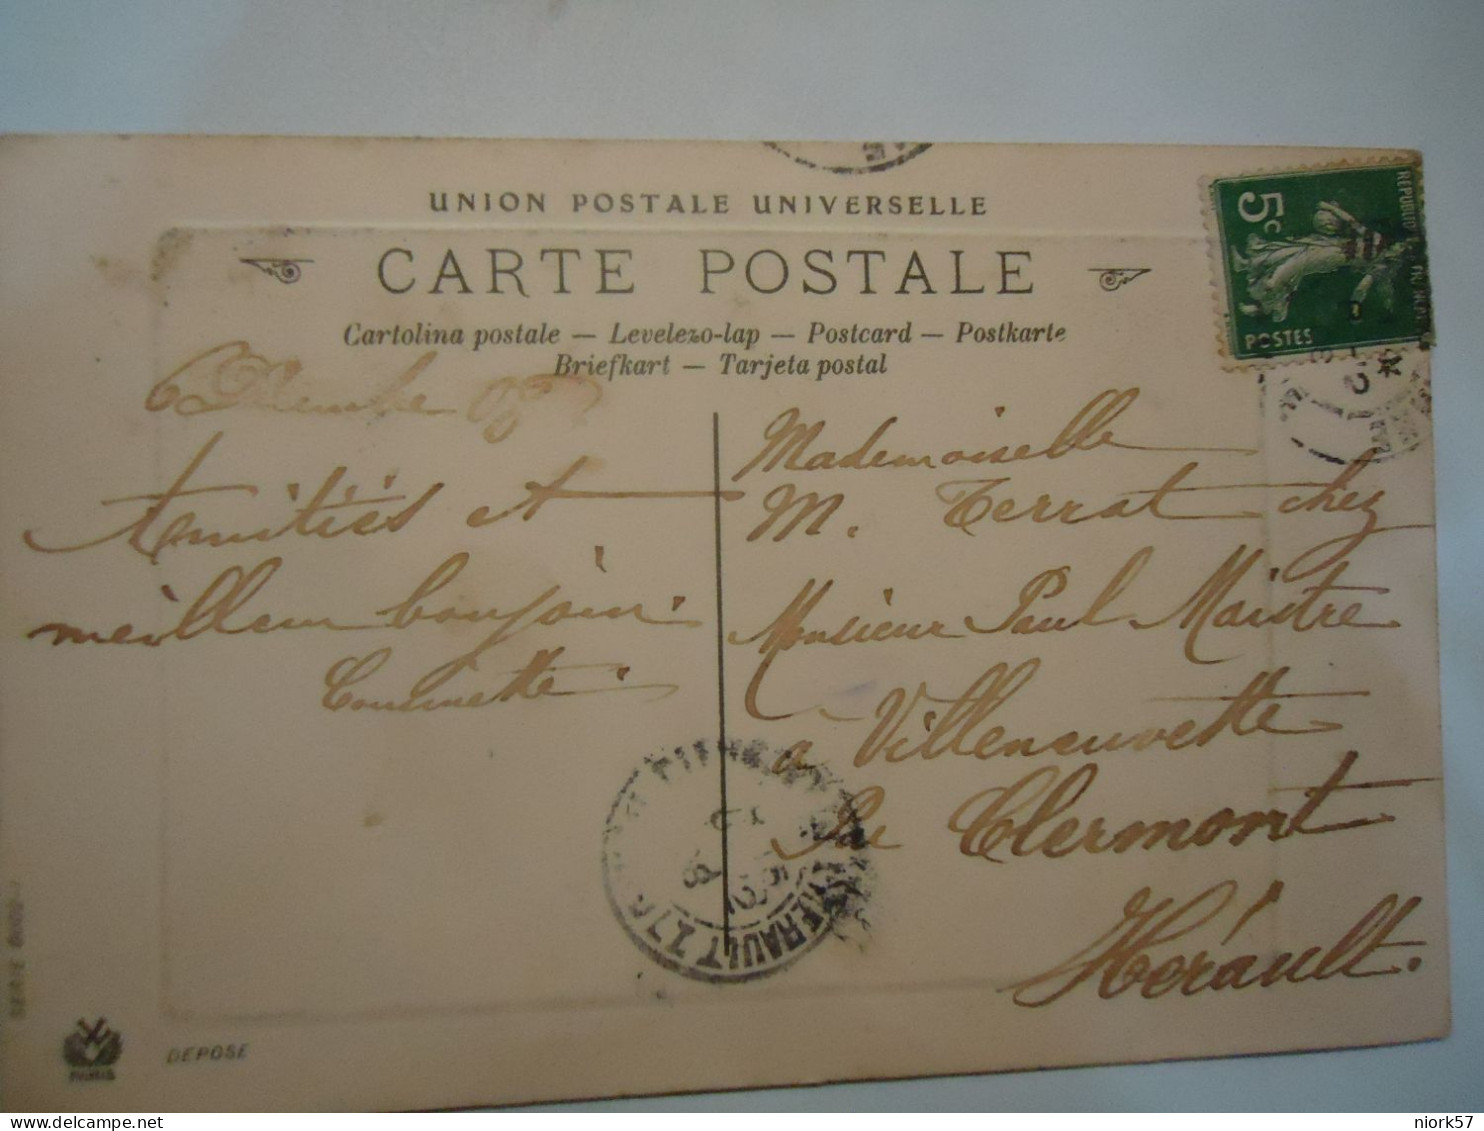 UNION POSTALE UNIVERSELLE
CARTE POSTALE
Cartolina postale — Levelezo-lap — Postcard — Postkarte
Briefkart — Tarjeta postal
5c
POSTES
6 Décembre
Amitiés et
meilleur bonjour.
Cousinette.
Mademoiselle
M. Terrat chez
Monsieur Paul Maistre
a Villeneuvette
Par Clermont
Hérault.
HERAULT
DEPOSE
PARIS
niork57